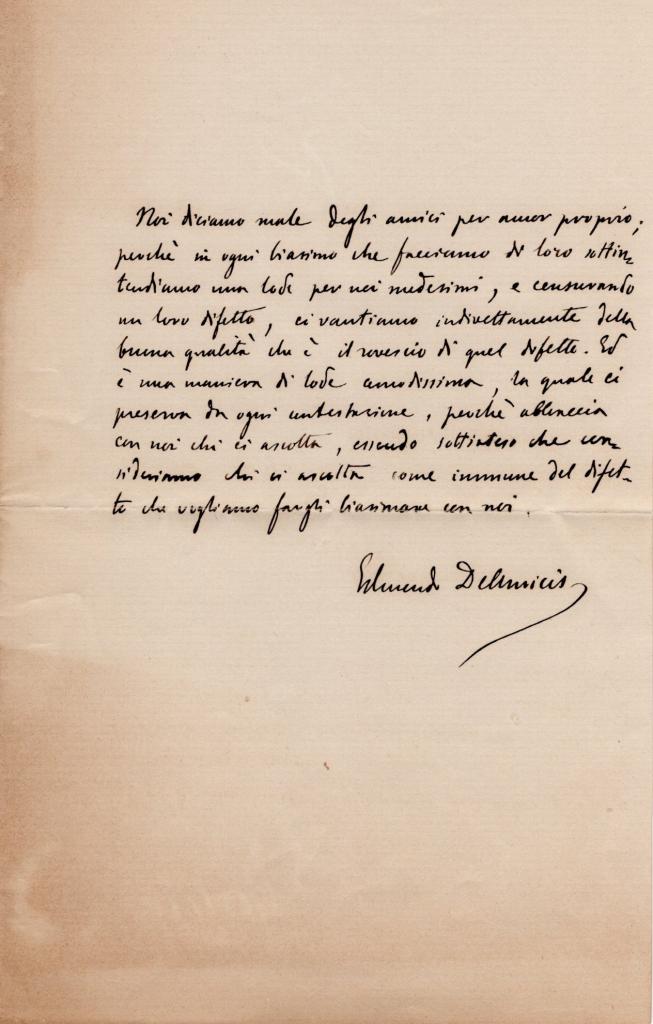 Noi diciamo male degli amici per amor proprio;
perchè in ogni biasimo che facciamo di loro sottin-
tendiamo una lode per noi medesimi, e censurando
un loro difetto, ci vantiamo indirettamente della
buona qualità che è il rovescio di quel difetto. Ed
è una maniera di lode comodissima, la quale ci
preserva da ogni contestazione, perchè abbraccia
con noi chi ci ascolta, essendo sottinteso che con-
sideriamo chi ci ascolta come immune del difet-
to che vogliamo fargli biasimare con noi.
Edmondo DeAmicis